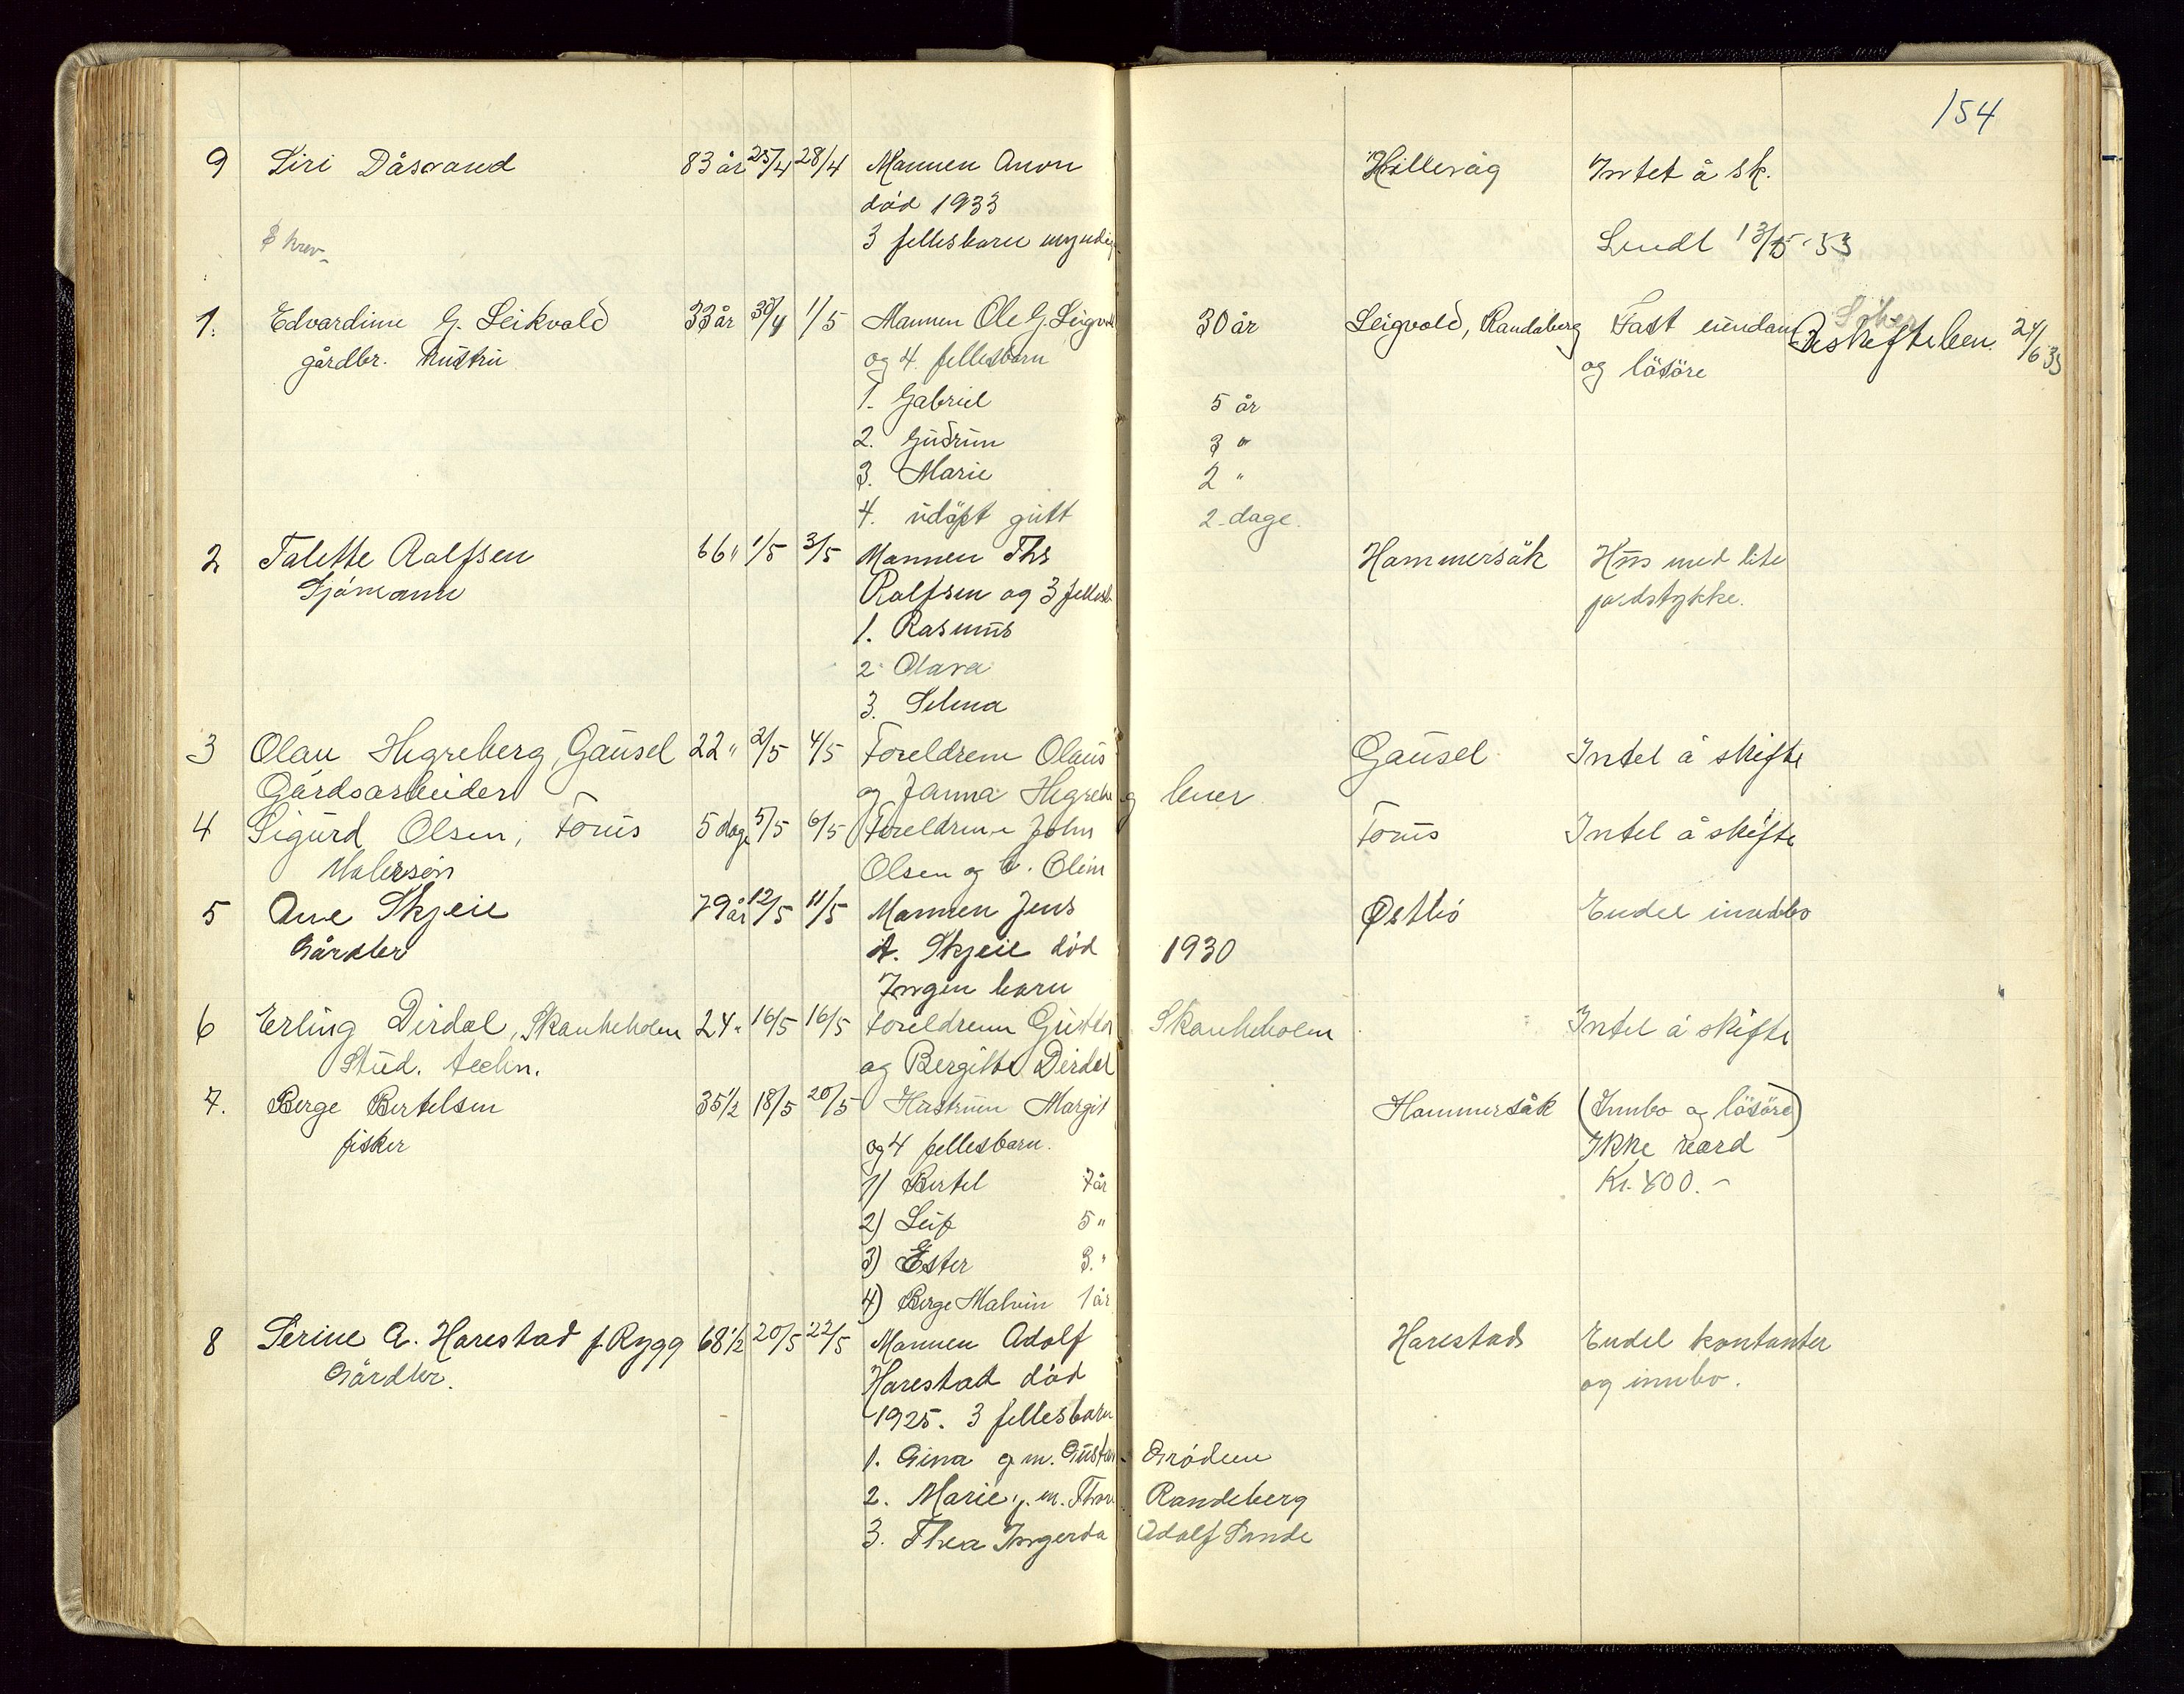 154
9 Siri Dåsvand 83 år 25/4 28/4 Mannen Anon Hillevåg Intet å sk.
død 1933
3 fellesbarn myndig Sendt 13/5-33
1. Edvardine G. Leikvold 33 år 30/4 1/5 Mannen Ole G. Leigvold 30 år Leigvold, Randaberg Fast eiendom Søker Uskifteben. 24/6 33
gårdbr. hustru og 4 fellesbarn og løsøre
1. Gabriel 5 år
2. Gudrun 3 "
3. Marie 2 "
4. udøpt gutt 2 dage.
2 Talette Ralfsen 66 " 1/5 3/5 Mannen Ths Hammersåk Hus med lite
Sjømann Ralfsen og 3 fellesb jordstykke.
1. Rasmus
2. Olava
3. Selma
3 Olau Hegreberg, Gausel 22 " 2/5 4/5 Foreldrene Olaus Gausel Intet å skifte
Gårdsarbeider og Janna Hegreberg lever
4 Sigurd Olsen, Forus 5 dage 5/5 6/5 Foreldrene John Forus Intet å skifte
Malersøn Olsen og Olin
5 Ane Skjeie 79 år 12/5 11/5 Mannen Jens Østbø Endel innbo
Gårdbr A. Skjeie død 1930
Ingen barn
6 Erling Dirdal, Skankeholen 24 " 16/5 16/5 Foreldrene Gustav Skankeholen Intet å skifte
Stud. techn. og Bergitte Dirdal
7. Berge Bertelsen 35 1/2 18/5 20/5 Hustruen Margit Hammersåk (Innbo og løsøre)
fisker og 4 fellesbarn. Ikke værd
1) Bertel 7 år Kr. 400.-
2) Leif 5 "
3) Ester 3. "
4) Berge Malvin 1 år
8 Serine A. Harestad f. Rygg 68 1/2 20/5 22/5 Mannen Adolf Harestad Endel kontanter
Gårdbr. Harestad død og innbo.
1925. 3 fellesbarn
1. Gina g.m. Gustav Grødem
2. Marie g.m. Thor Randeberg
3. Thea Ingerda Adolf Sande